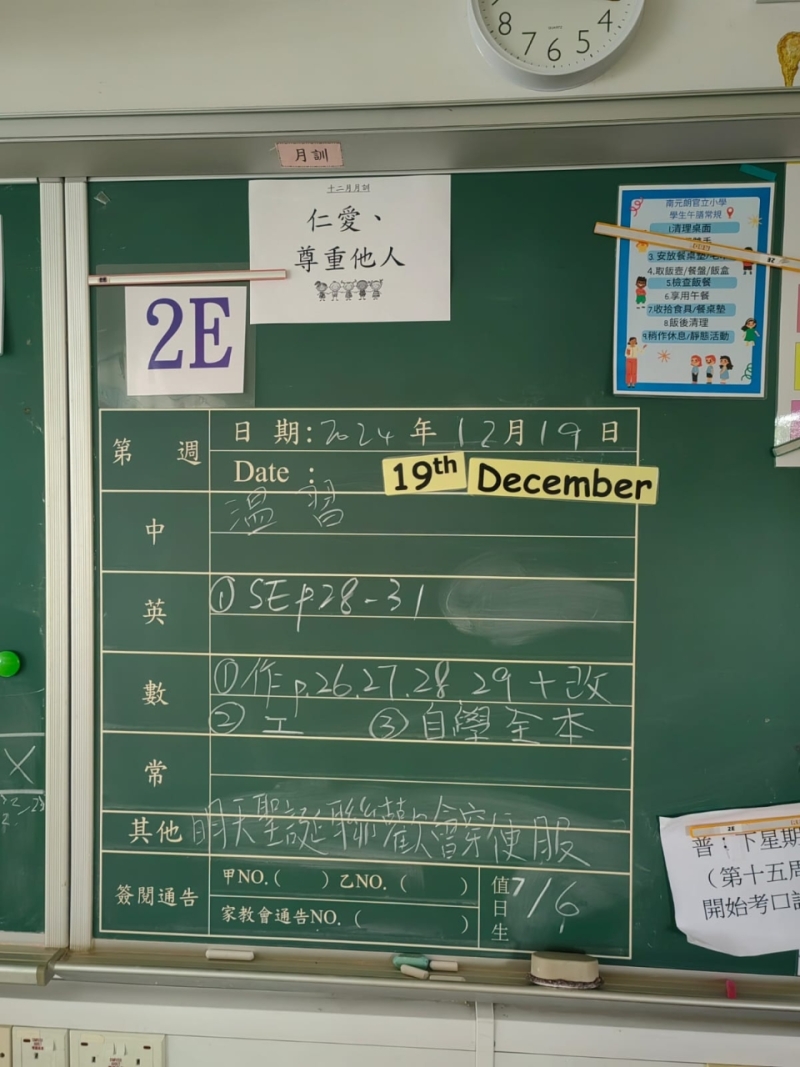 8 7 6 5 4
月訓
十二月月訓
仁愛、
尊重他人
2E
南元朗官立小學
學生午膳常規
1清理桌面
3.安放餐桌墊/毛巾
4.取飯壺/餐盤/飯盒
5檢查飯餐
6.享用午餐
7.收拾食具/餐桌墊
8飯後清理
9.稍作休息/靜態活動
第 週
日 期:2024年12月19日
Date :
19th December
中
溫習
英
① SE p.28-31
數
①作p.26.27.28 29 + 改
② 工 ③ 自學全本
常
其他
明天聖誕聯歡會穿便服
簽閱通告
甲NO.( ) 乙NO. ( )
家教會通告NO. ( )
值日生
7/6
普:下星期
(第十五周
開始考口試
X
2E